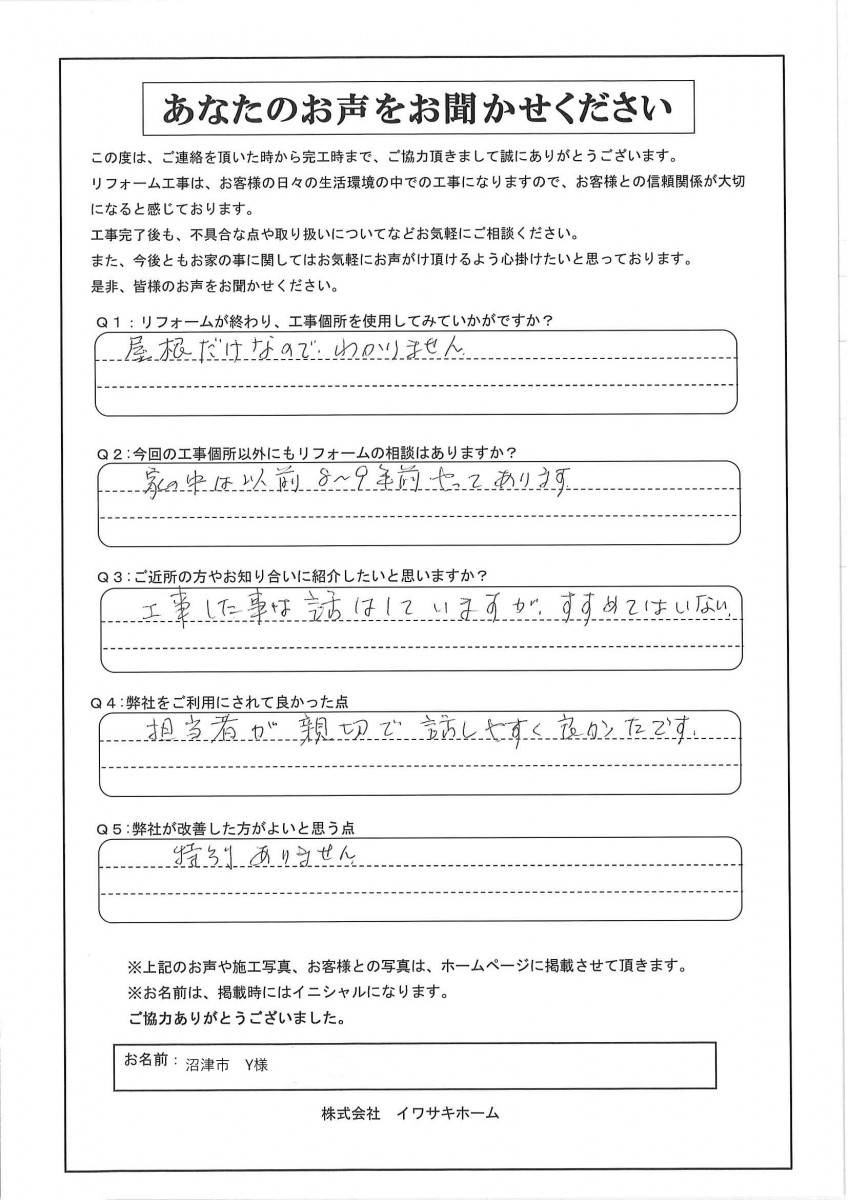 あなたのお声をお聞かせください
この度は、ご連絡を頂いた時から完工時まで、ご協力頂きまして誠にありがとうございます。
リフォーム工事は、お客様の日々の生活環境の中での工事になりますので、お客様との信頼関係が大切
になると感じております。
工事完了後も、不具合な点や取り扱いについてなどお気軽にご相談ください。
また、今後ともお家の事に関してはお気軽にお声がけ頂けるよう心掛けたいと思っております。
是非、皆様のお声をお聞かせください。
Q1：リフォームが終わり、工事個所を使用してみていかがですか？
屋根だけなので、わかりません
Q2：今回の工事個所以外にもリフォームの相談はありますか？
家の中は以前8～9年前やってあります
Q3：ご近所の方やお知り合いに紹介したいと思いますか？
工事した事は話はしていますが、すすめてはいない。
Q4：弊社をご利用にされて良かった点
担当者が親切で話しやすく良かったです。
Q5：弊社が改善した方がよいと思う点
特別ありません
※上記のお声や施工写真、お客様との写真は、ホームページに掲載させて頂きます。
※お名前は、掲載時にはイニシャルになります。
ご協力ありがとうございました。
お名前：沼津市　Y様
株式会社　イワサキホーム